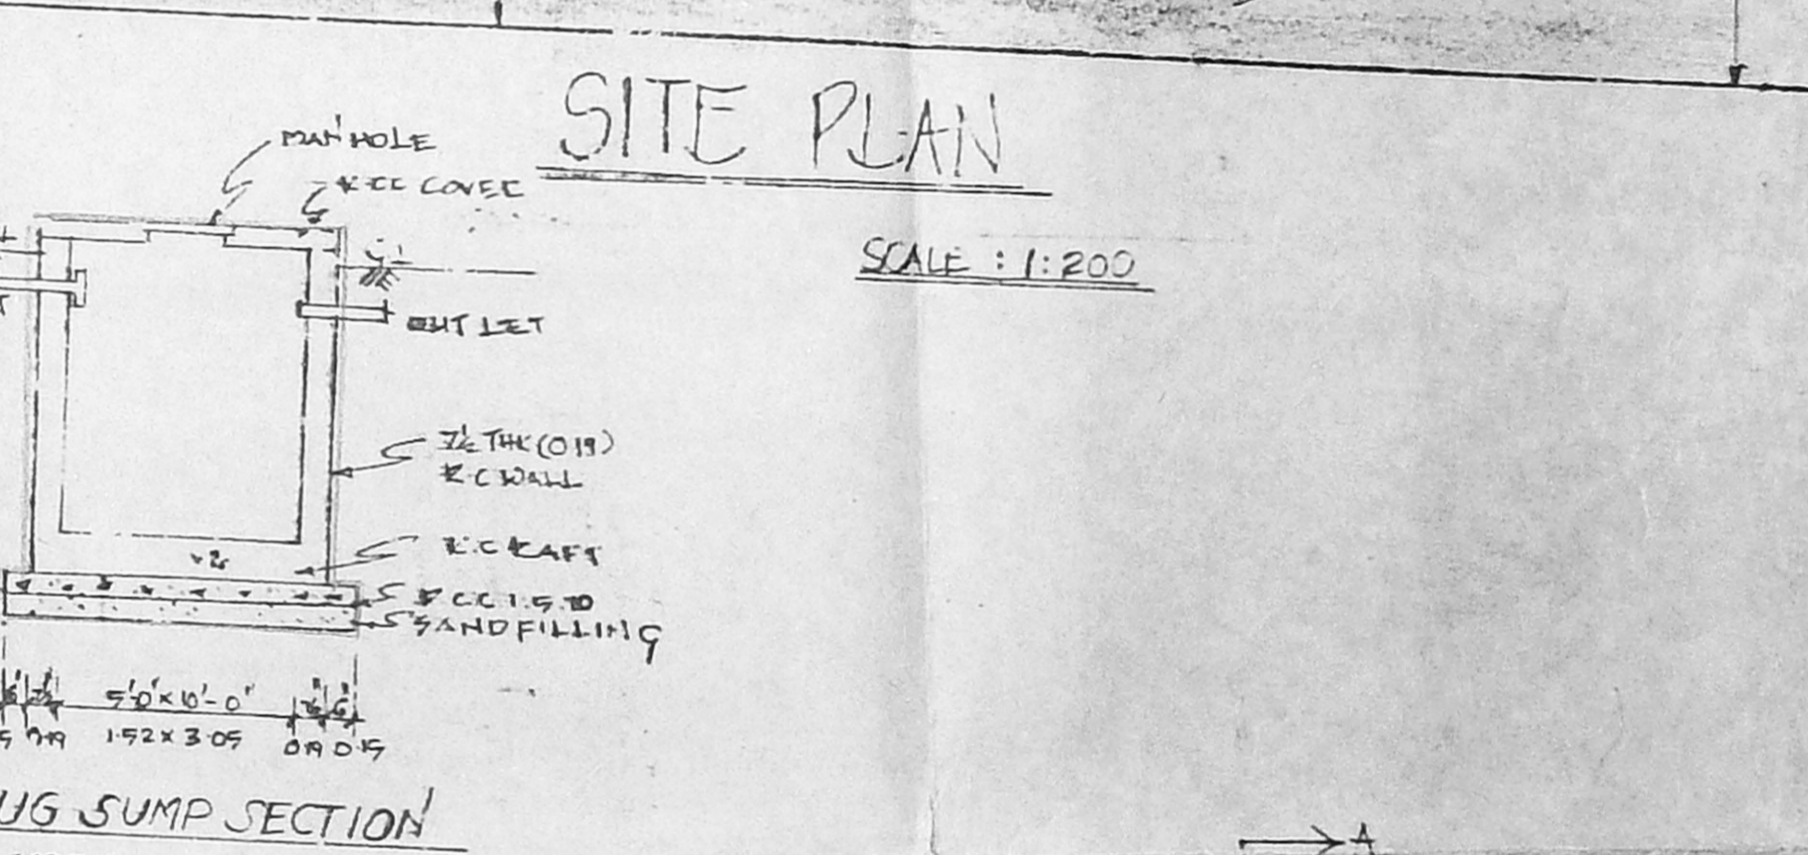 SITE PLAN
SCALE : 1:200
MANHOLE
R.CC COVER
G.L
OUTLET
7½ THK (0.19)
R.C WALL
R.C RAFT
P.C.C 1.5.10
SAND FILLING
6" 7½" 5'-0" x 10'-0" 7½" 6"
0.19 1.52 x 3.05 0.19 0.15
UG SUMP SECTION
A